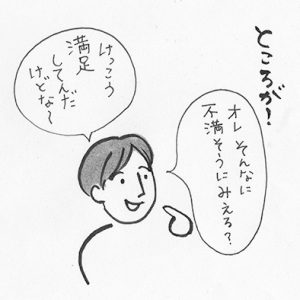 ところが!
オレ そんなに
不満そうにみえる?
けっこう
満足
してんだ
けどな〜